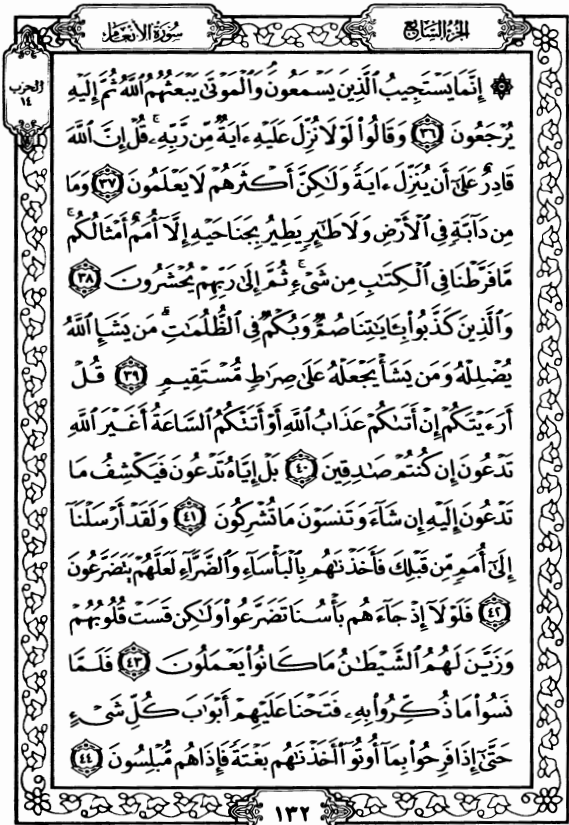 الجزء السابع
سورة الأنعام
الحزب
١٤
۞ إِنَّمَا يَسْتَجِيبُ ٱلَّذِينَ يَسْمَعُونَۘ وَٱلْمَوْتَىٰ يَبْعَثُهُمُ ٱللَّهُ ثُمَّ إِلَيْهِ
يُرْجَعُونَ ٣٦ وَقَالُوا۟ لَوْلَا نُزِّلَ عَلَيْهِ ءَايَةٌ مِّن رَّبِّهِۦۚ قُلْ إِنَّ ٱللَّهَ
قَادِرٌ عَلَىٰٓ أَن يُنَزِّلَ ءَايَةً وَلَٰكِنَّ أَكْثَرَهُمْ لَا يَعْلَمُونَ ٣٧ وَمَا
مِن دَآبَّةٍ فِى ٱلْأَرْضِ وَلَا طَٰٓئِرٍ يَطِيرُ بِجَنَاحَيْهِ إِلَّآ أُمَمٌ أَمْثَالُكُمۚ
مَّا فَرَّطْنَا فِى ٱلْكِتَٰبِ مِن شَىْءٍۚ ثُمَّ إِلَىٰ رَبِّهِمْ يُحْشَرُونَ ٣٨
وَٱلَّذِينَ كَذَّبُوا۟ بِـَٔايَٰتِنَا صُمٌّ وَبُكْمٌ فِى ٱلظُّلُمَٰتِۗ مَن يَشَإِ ٱللَّهُ
يُضْلِلْهُ وَمَن يَشَأْ يَجْعَلْهُ عَلَىٰ صِرَٰطٍ مُّسْتَقِيمٍ ٣٩ قُلْ
أَرَءَيْتَكُمْ إِنْ أَتَىٰكُمْ عَذَابُ ٱللَّهِ أَوْ أَتَتْكُمُ ٱلسَّاعَةُ أَغَيْرَ ٱللَّهِ
تَدْعُونَ إِن كُنتُمْ صَٰدِقِينَ ٤٠ بَلْ إِيَّاهُ تَدْعُونَ فَيَكْشِفُ مَا
تَدْعُونَ إِلَيْهِ إِن شَآءَ وَتَنسَوْنَ مَا تُشْرِكُونَ ٤١ وَلَقَدْ أَرْسَلْنَآ
إِلَىٰٓ أُمَمٍ مِّن قَبْلِكَ فَأَخَذْنَٰهُم بِٱلْبَأْسَآءِ وَٱلضَّرَّآءِ لَعَلَّهُمْ يَتَضَرَّعُونَ
٤٢ فَلَوْلَآ إِذْ جَآءَهُم بَأْسُنَا تَضَرَّعُوا۟ وَلَٰكِن قَسَتْ قُلُوبُهُمْ
وَزَيَّنَ لَهُمُ ٱلشَّيْطَٰنُ مَا كَانُوا۟ يَعْمَلُونَ ٤٣ فَلَمَّا
نَسُوا۟ مَا ذُكِّرُوا۟ بِهِۦ فَتَحْنَا عَلَيْهِمْ أَبْوَٰبَ كُلِّ شَىْءٍ
حَتَّىٰٓ إِذَا فَرِحُوا۟ بِمَآ أُوتُوٓا۟ أَخَذْنَٰهُم بَغْتَةً فَإِذَا هُم مُّبْلِسُونَ ٤٤
١٣٢